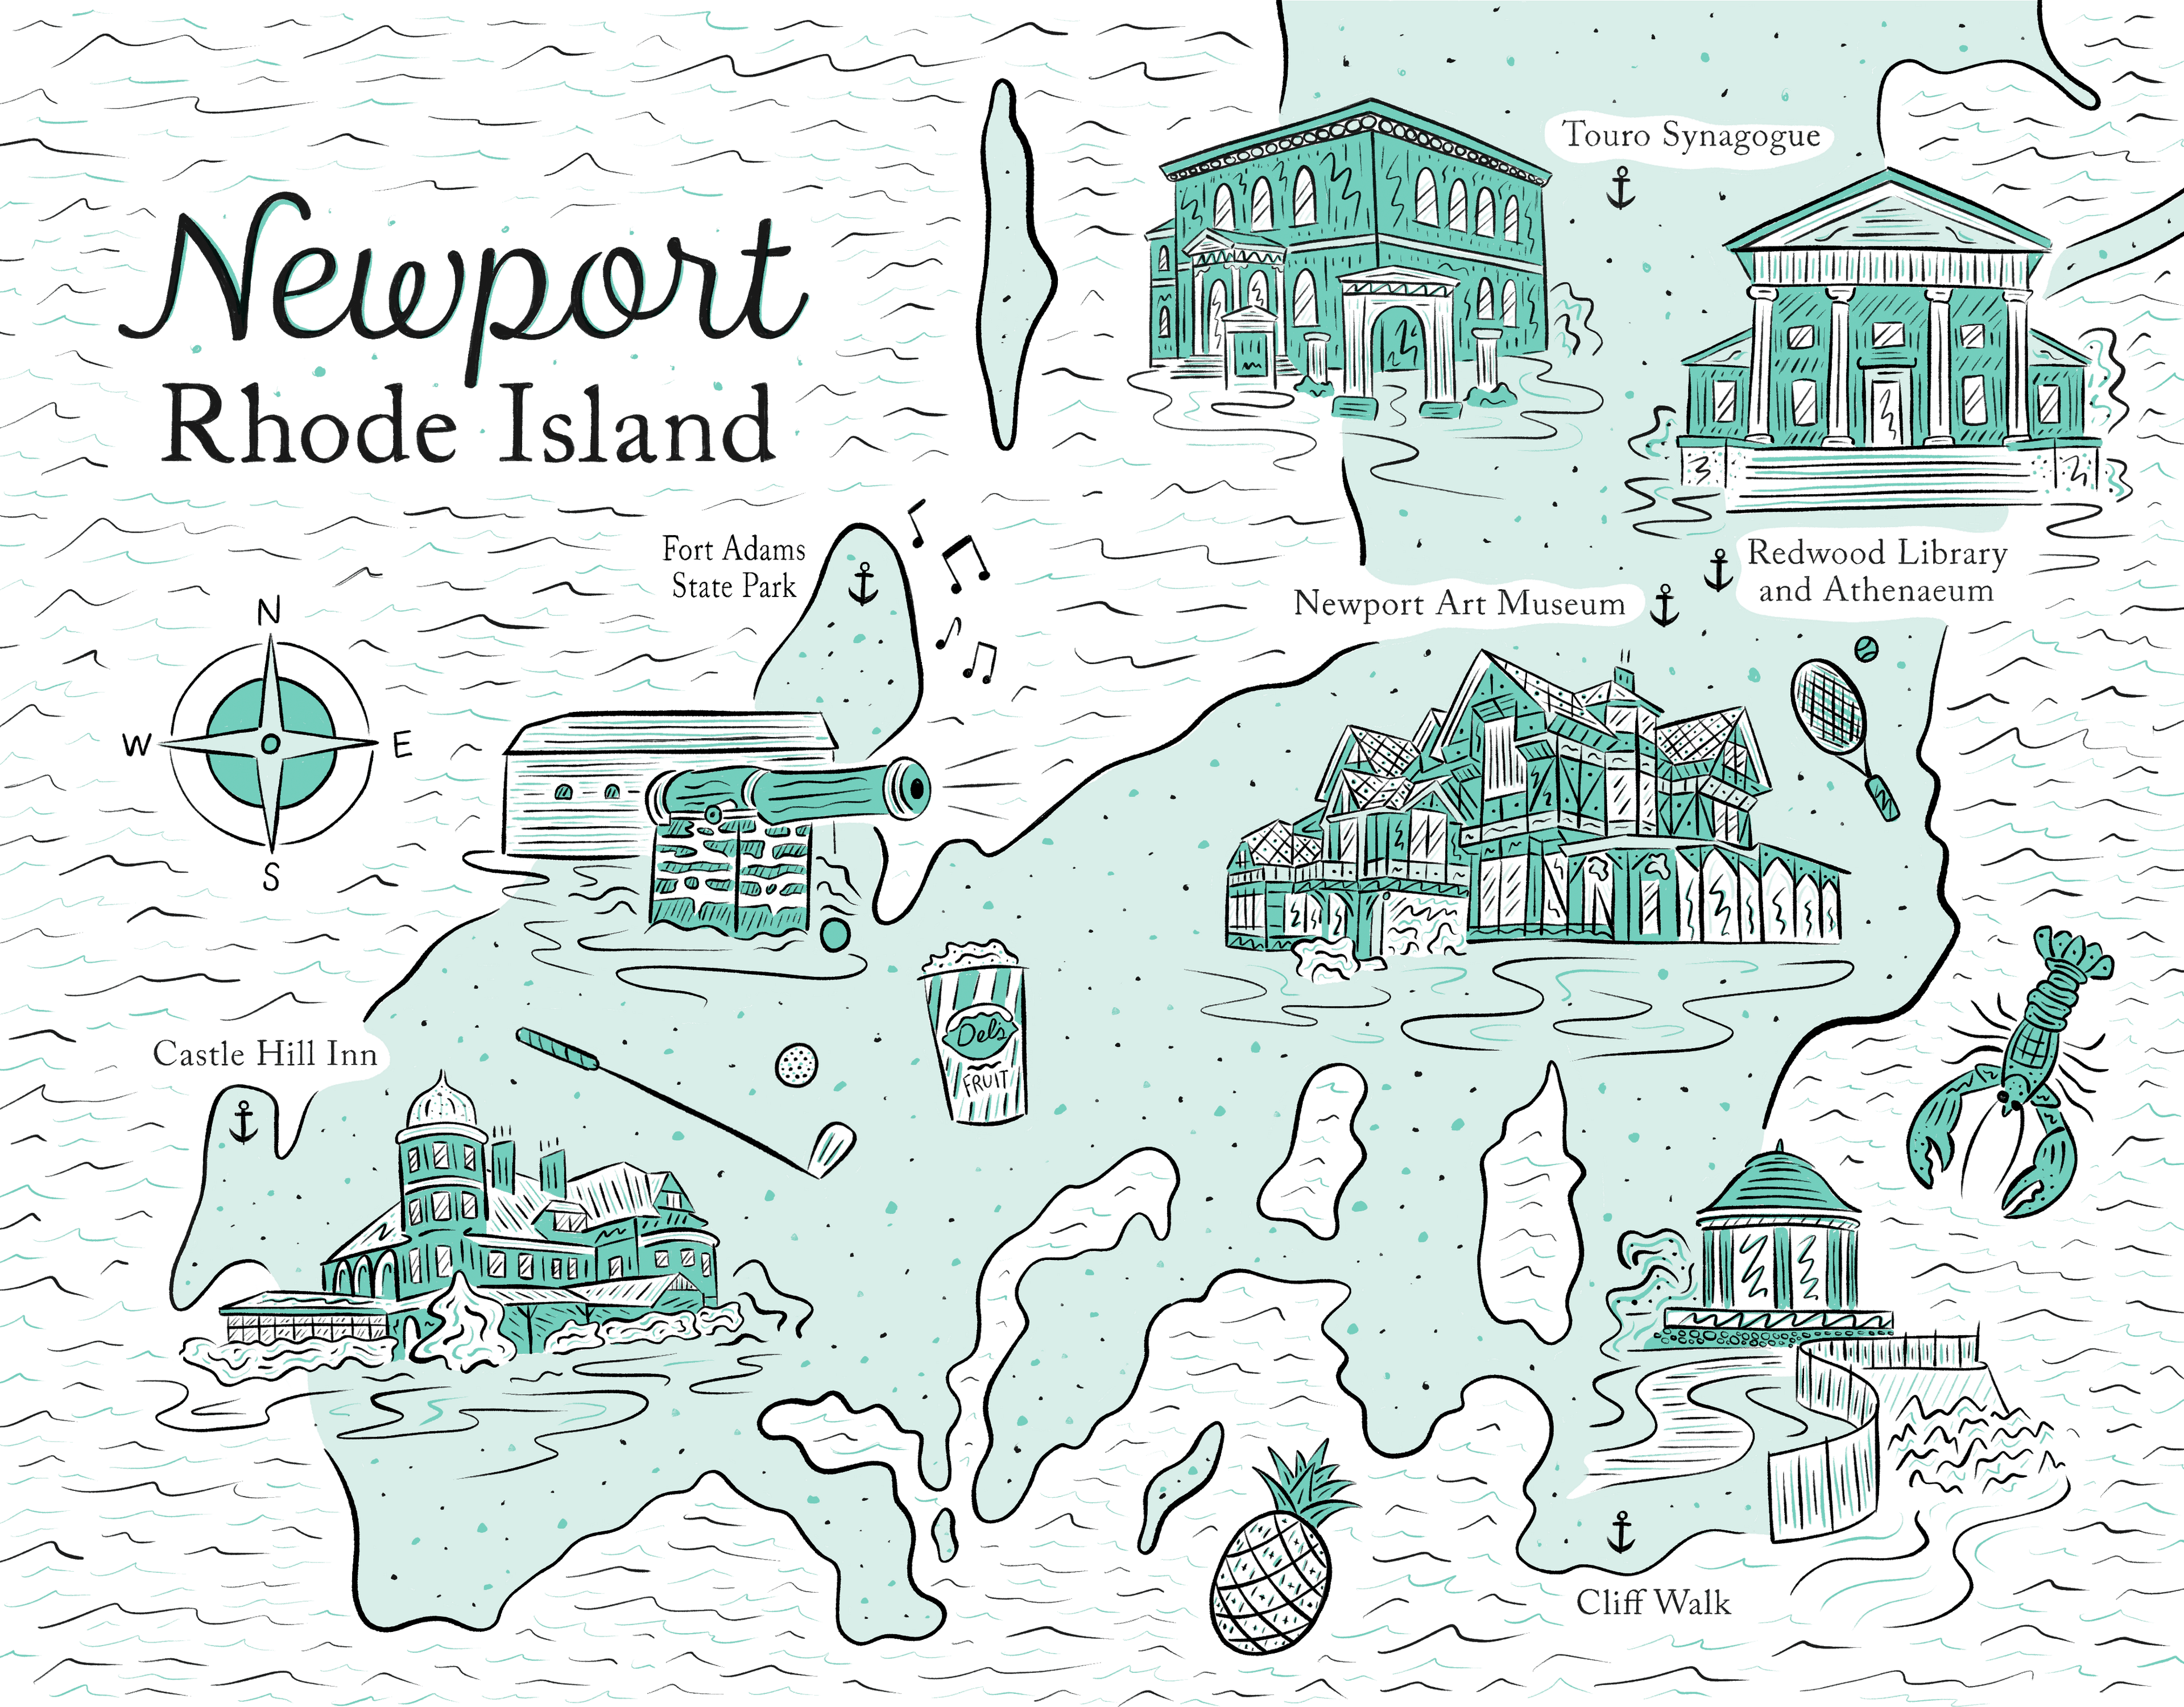 Newport
Rhode Island
Touro Synagogue
Fort Adams
State Park
Redwood Library
and Athenaeum
Newport Art Museum
N
W
E
S
Castle Hill Inn
Del's
FRUIT
Cliff Walk